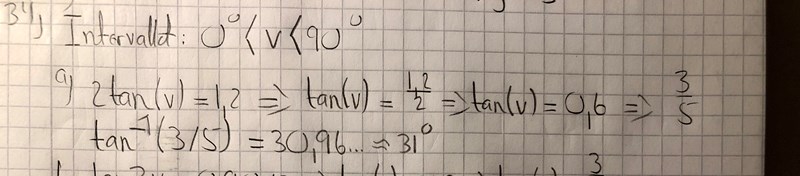 34) Intervallet: 0° < v < 90°
a) 2tan(v) = 1,2 => tan(v) = 1,2/2 => tan(v) = 0,6 => 3/5
tan⁻¹(3/5) = 30,96... ≈ 31°
3